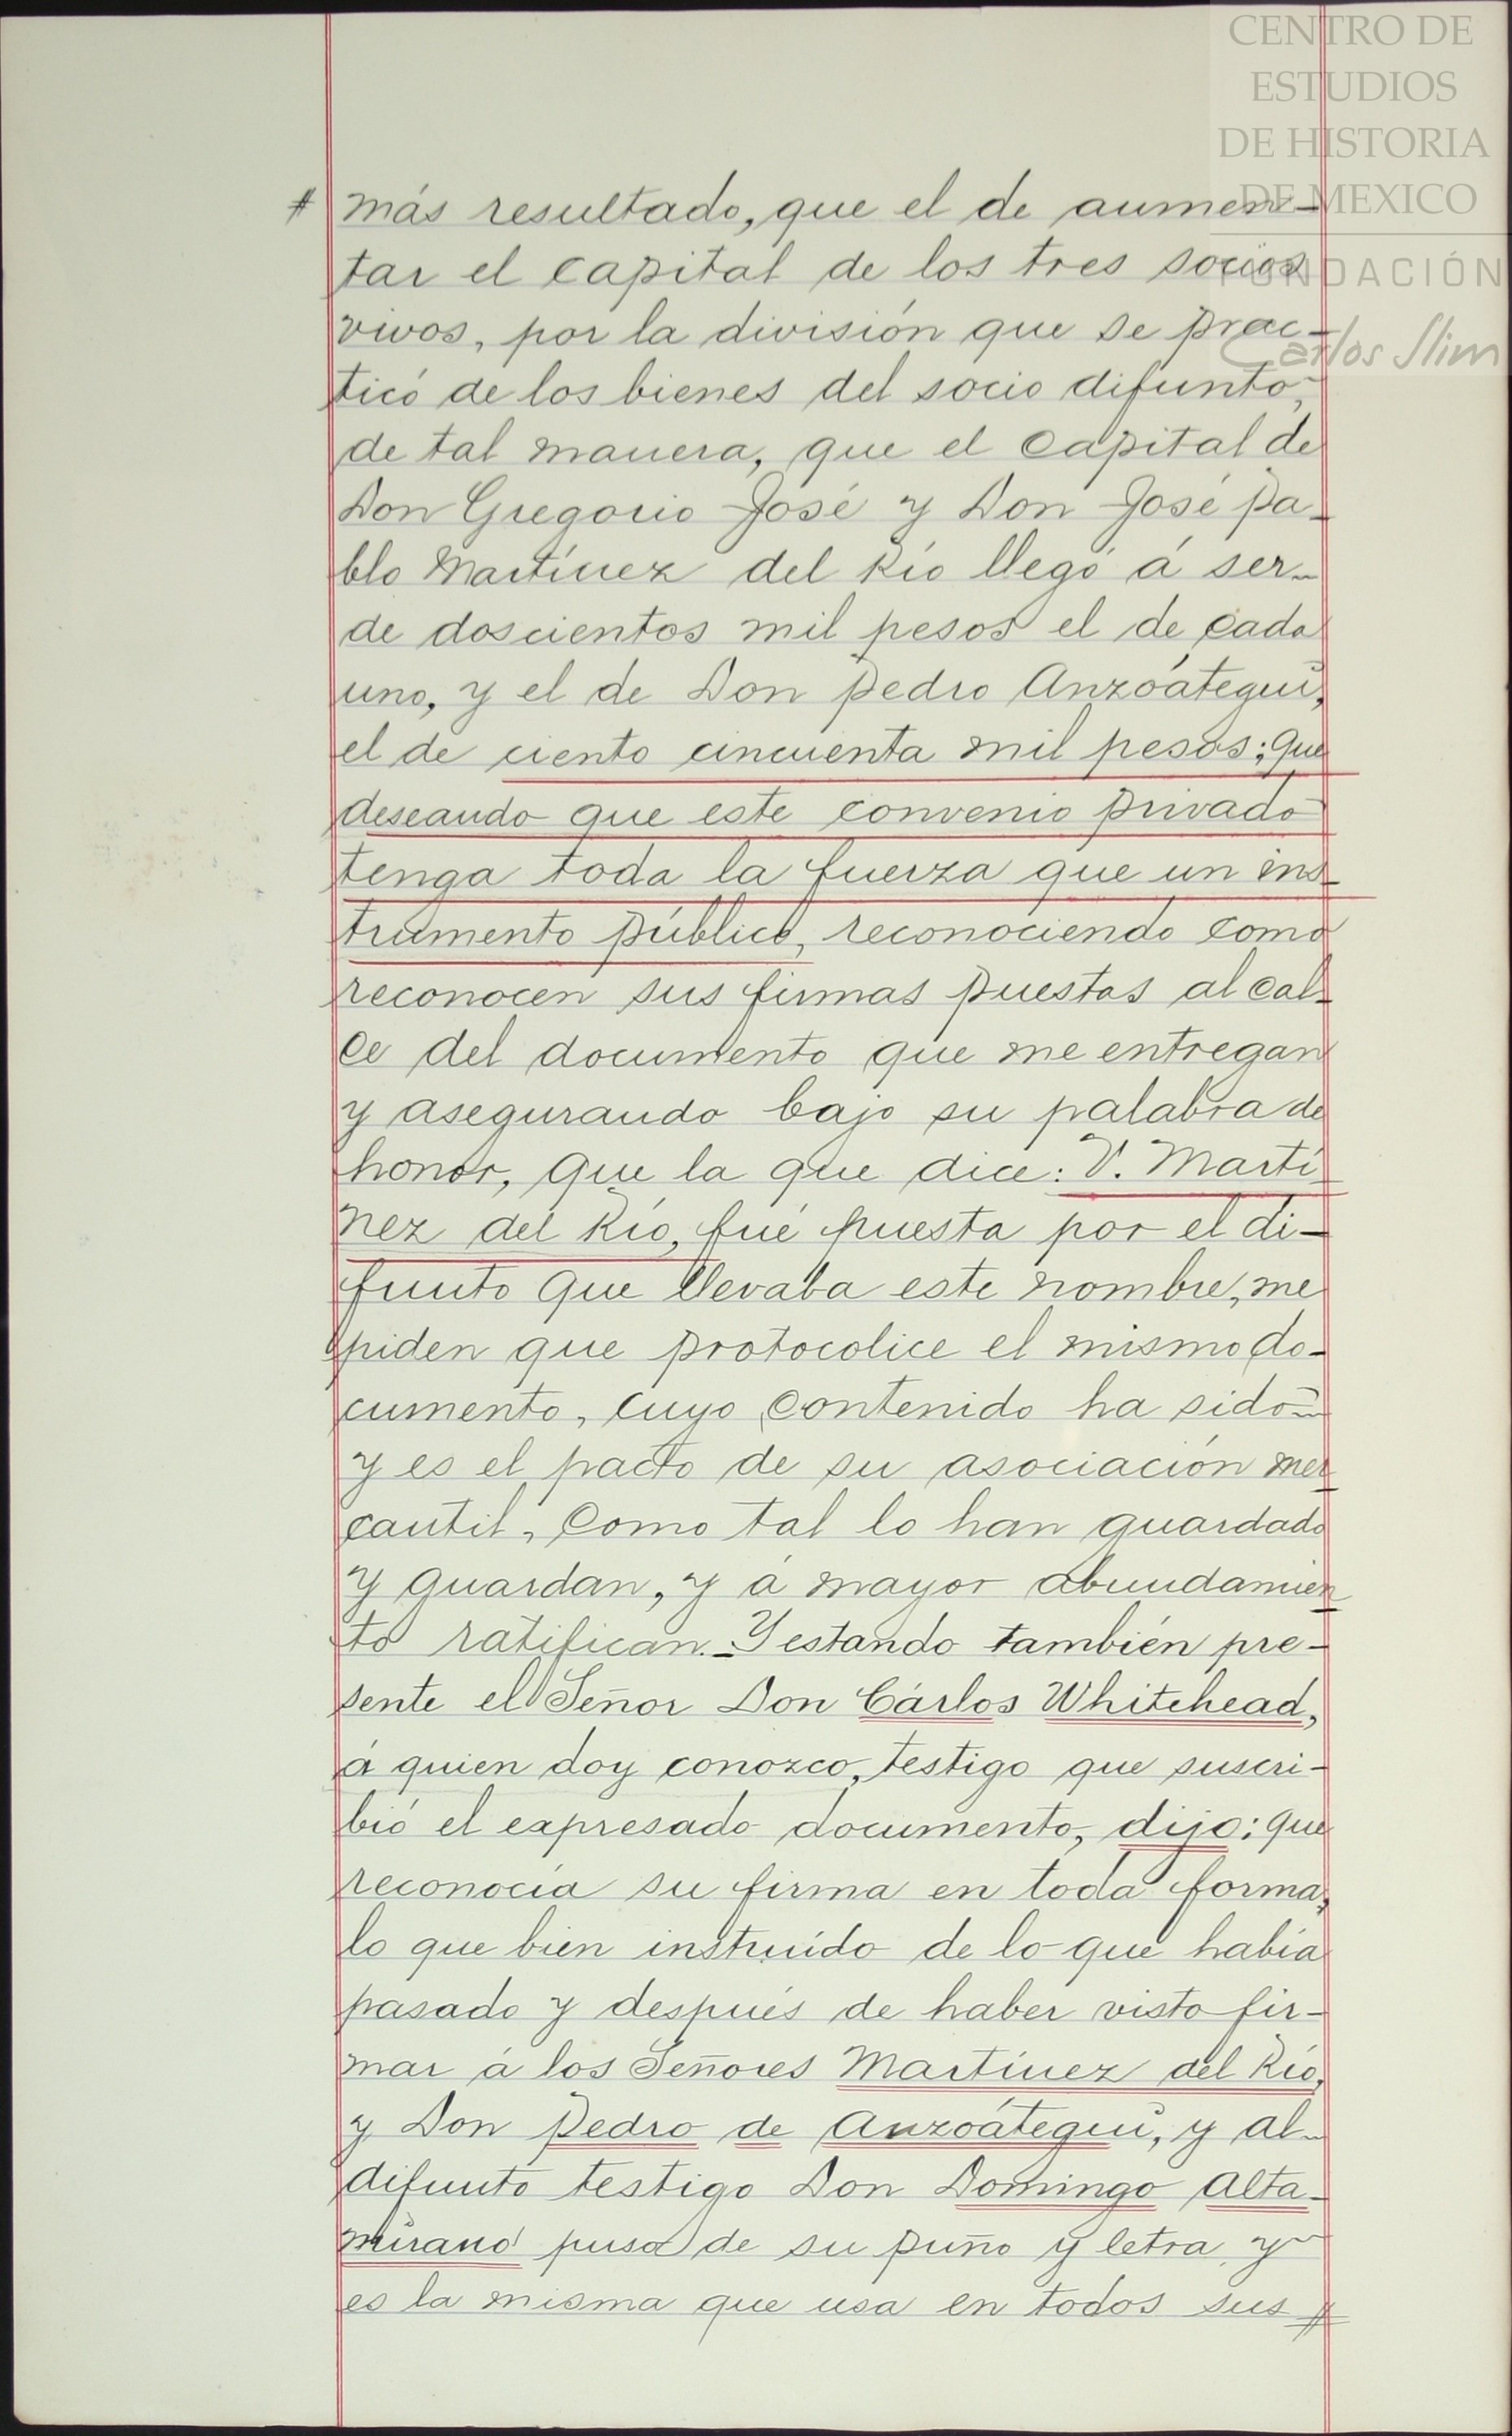 CENTRO DE
ESTUDIOS
DE HISTORIA
DE MEXICO
FUNDACIÓN
Carlos Slim
# más resultado, que el de aumen-
tar el capital de los tres socios
vivos, por la división que se prac-
ticó de los bienes del socio difunto,
de tal manera, que el capital de
Don Gregorio José y Don José Pa-
blo Martínez del Río llegó á ser
de doscientos mil pesos el de cada
uno, y el de Don Pedro Anzoátegui,
el de ciento cincuenta mil pesos; que
deseando que este convenio privado
tenga toda la fuerza que un ins-
trumento público, reconociendo como
reconocen sus firmas puestas al cal-
ce del documento que me entregan
y asegurando bajo su palabra de
honor, que la que dice: V. Martí-
nez del Río, fué puesta por el di-
funto que llevaba este nombre, me
piden que protocolice el mismo do-
cumento, cuyo contenido ha sido
y es el pacto de su asociación mer-
cantil, como tal lo han guardado
y guardan, y á mayor abundamien-
to ratifican.- Y estando también pre-
sente el Señor Don Cárlos Whitehead,
á quien doy conozco, testigo que suscri-
bió el expresado documento, dijo: que
reconocía su firma en toda forma,
lo que bien instruído de lo que había
pasado y después de haber visto fir-
mar á los Señores Martínez del Río,
y Don Pedro de Anzoátegui, y al
difunto testigo Don Domingo Alta-
mirano puso de su puño y letra, y
es la misma que usa en todos sus #